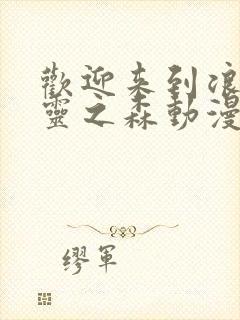 歡迎来到浪
靈之森動漫
繆軍